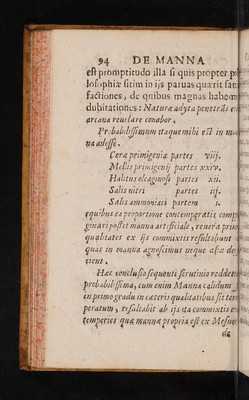 94 DE MANNA
est promptitudo illa si quis propter
losophiæ sitim in ijs paruas quærit
factiones, de quibus magnas habem
dubitationes: Naturæ adyta penetrās
arcana reuelare conabor.
Probabilissimum itaque mihi est in
na adesse.
Ceræ primigeniæ partes viij.
Mellis primigenij partes xxiv.
Habitus oleaginosi partes xii.
Salis nitri partes iij.
Salis ammoniaci partem i.
equibus ea proportione contemperatis
ginari posset manna artificiale, reuera
qualitates ex ijs commixtis resultabunt
quas in manna agnoscimus neque aliæ
cient.
Hæc conclusio sequenti scrutinio
probabilissima, cum enim Manna calidum
in primo gradu in cæteris qualitatibus sit
peratum, resultabit ab ijs ita commixtis
temperies quæ mannæ propria est ex